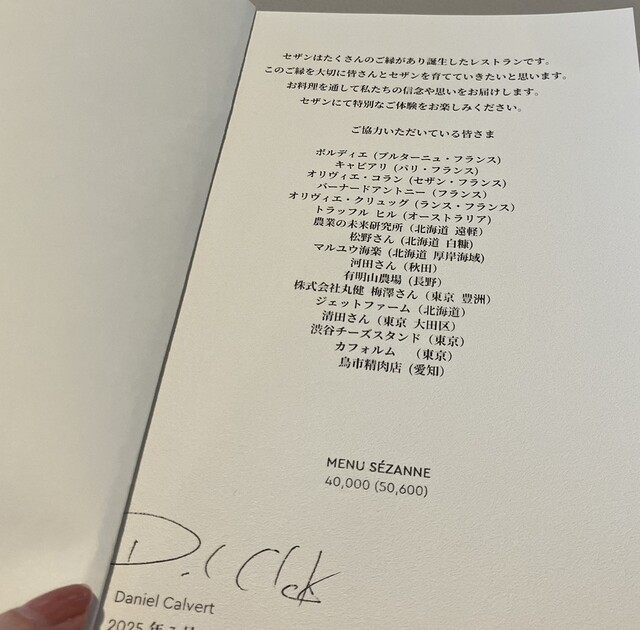 セザンはたくさんのご縁があり誕生したレストランです。
このご縁を大切に皆さんとセザンを育てていきたいと思います。
お料理を通して私たちの信念や思いをお届けします。
セザンにて特別なご体験をお楽しみください。
ご協力いただいている皆さま
ボルディエ (ブルターニュ・フランス)
キャビアリ (パリ・フランス)
オリヴィエ・コラン (セザン・フランス)
バーナードアントニー (フランス)
オリヴィエ・クリュッグ (ランス・フランス)
トラッフル ヒル (オーストラリア)
農業の未来研究所 (北海道 遠軽)
松野さん (北海道 白糠)
マルユウ海楽 (北海道 厚岸海域)
河田さん (秋田)
有明山農場 (長野)
株式会社丸健 梅澤さん (東京 豊洲)
ジェットファーム (北海道)
清田さん (東京 大田区)
渋谷チーズスタンド (東京)
カフォルム (東京)
鳥市精肉店 (愛知)
MENU SÉZANNE
40,000 (50,600)
Daniel Calvert
2025 年